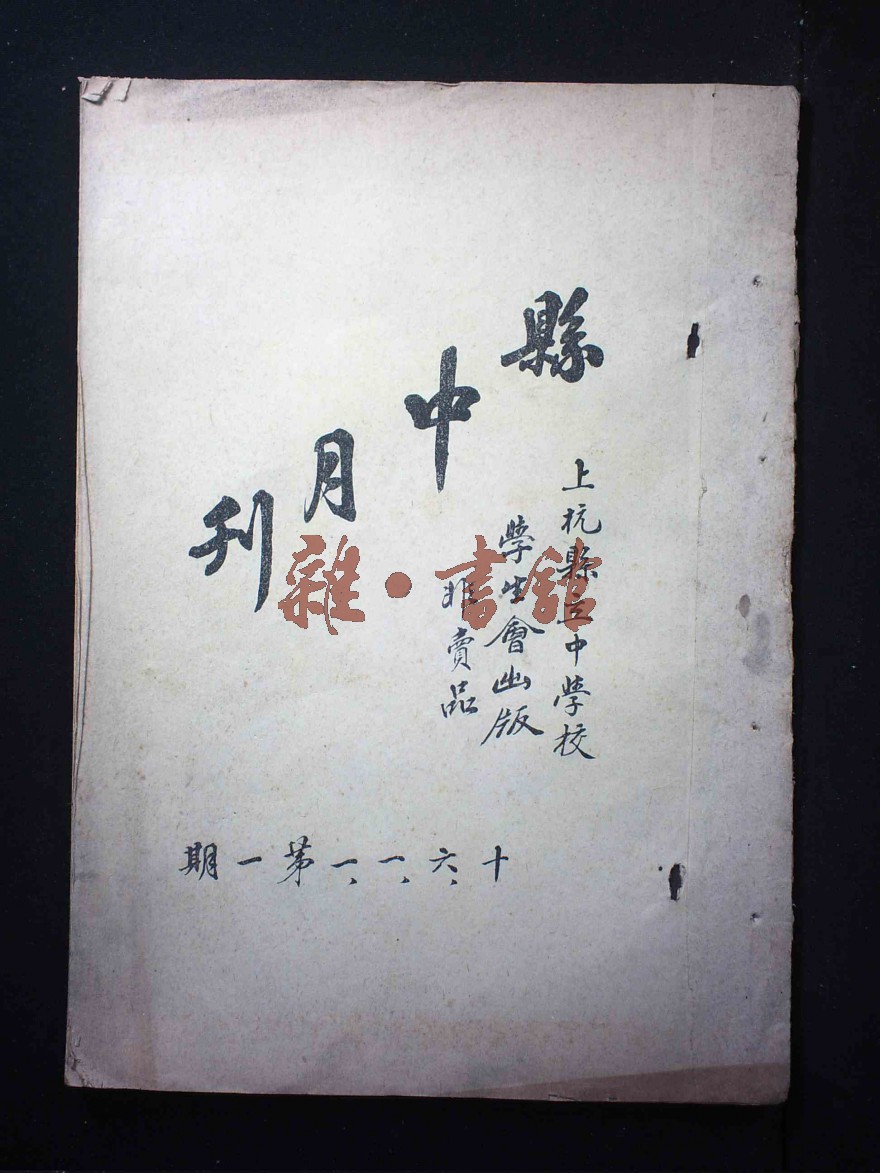 縣中月刊
上杭縣立中學校
學生會出版
非賣品
十六、一、一、第一期
雜·書館